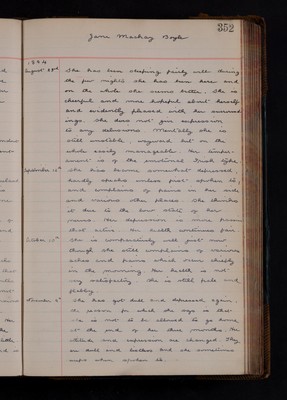 Jane Mackay Boyle
352
1894
August 28th She has been sleeping fairly well during
the few nights she has been here and
on the whole she seems better. She is
cheerful and more hopeful about herself
and evidently pleased with her surround
ings. She does not give expression
to any delusions. Mentally she is
still unstable, wayward but on the
whole easily manageable. Her temper-
ament is of the emotional Irish type.
September 12th She has become somewhat depressed
hardly speaks unless first spoken to,
and complains of pains in her side
and various other places. She thinks
it due to the low state of her
nerves. Her depression is more passive
than active. Her health continues fair.
October 15th She is comparatively well just now
though she still complains of various
aches and pains which occur chiefly
in the morning. Her health is not
very satisfactory. She is still pale and
flabby.
November 6th She has got dull and depressed again,
the reason for which she says is that
she is not to be allowed to go home
at the end of her three months. Her
attitude and expression are changed. They
are dull and listless and she sometimes
weeps when spoken to.